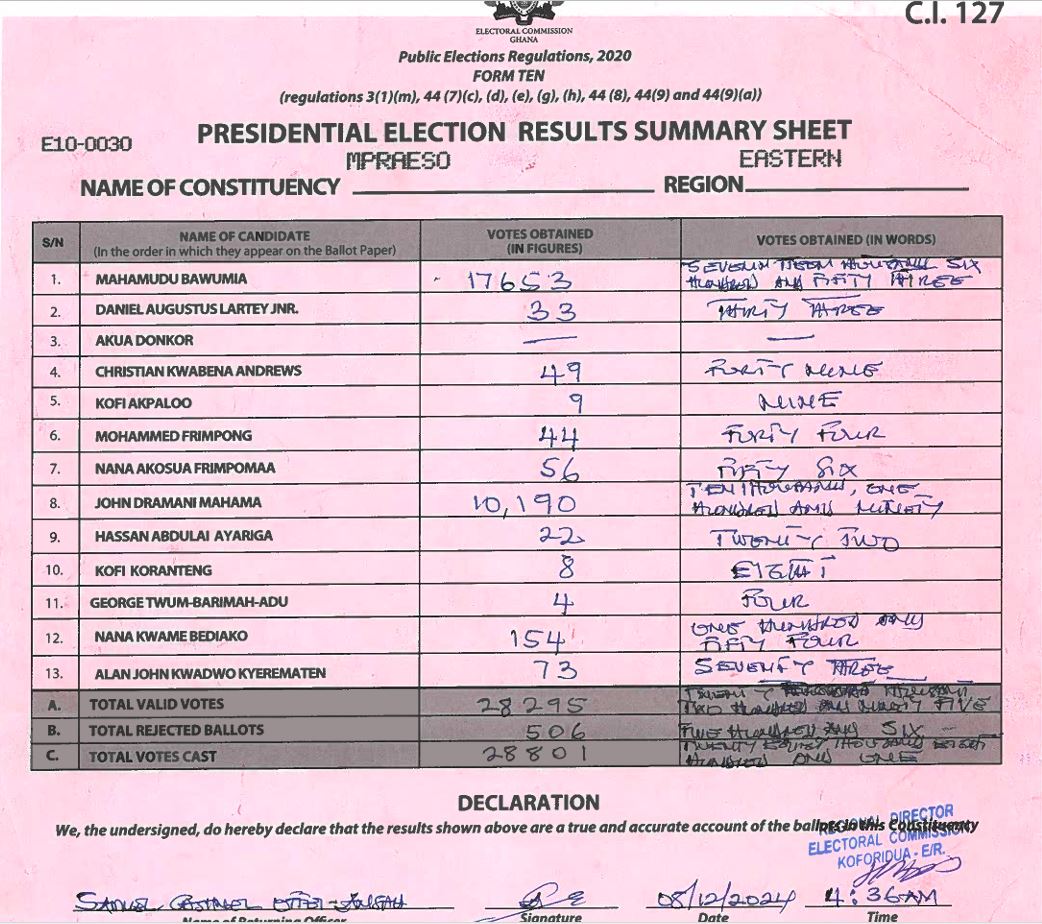 C.I. 127
ELECTORAL COMMISSION
GHANA
Public Elections Regulations, 2020
FORM TEN
(regulations 3(1)(m), 44 (7)(c), (d), (e), (g), (h), 44 (8), 44(9) and 44(9)(a))
PRESIDENTIAL ELECTION RESULTS SUMMARY SHEET
E10-0030
MPRAESO EASTERN
NAME OF CONSTITUENCY REGION
S/N NAME OF CANDIDATE (In the order in which they appear on the Ballot Paper) VOTES OBTAINED (IN FIGURES) VOTES OBTAINED (IN WORDS)
1. MAHAMUDU BAWUMIA 17653 THOUSAND SIX HUNDRED AND FIFTY THREE
2. DANIEL AUGUSTUS LARTEY JNR. 33 THIRTY THREE
3. AKUA DONKOR — —
4. CHRISTIAN KWABENA ANDREWS 49 FORTY NINE
5. KOFI AKPALOO 9 NINE
6. MOHAMMED FRIMPONG 44 FORTY FOUR
7. NANA AKOSUA FRIMPOMAA 56 FIFTY SIX
8. JOHN DRAMANI MAHAMA 10,190 TEN THOUSAND, ONE HUNDRED AND NINETY
9. HASSAN ABDULAI AYARIGA 22 TWENTY TWO
10. KOFI KORANTENG 8 EIGHT
11. GEORGE TWUM-BARIMAH-ADU 4 FOUR
12. NANA KWAME BEDIAKO 154 ONE HUNDRED AND FIFTY FOUR
13. ALAN JOHN KWADWO KYEREMATEN 73 SEVENTY THREE
A. TOTAL VALID VOTES 28295 TWO HUNDRED AND NINETY FIVE
B. TOTAL REJECTED BALLOTS 506 FIVE HUNDRED AND SIX
C. TOTAL VOTES CAST 28801 TWENTY EIGHT THOUSAND EIGHT HUNDRED AND ONE
DECLARATION
We, the undersigned, do hereby declare that the results shown above are a true and accurate account of the ballots in this Constituency
REGIONAL DIRECTOR
ELECTORAL COMMISSION
KOFORIDUA - E/R.
08/12/2024 4:36AM
Name of Returning Officer Signature Date Time